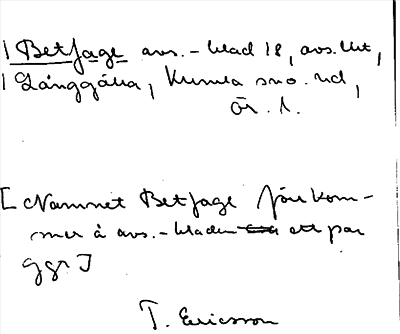 | Betfage avs.-blad 18, avs. utt,
| Långgälla, Kumla sn o. hd,
Ör. l.
[ Namnet Betfage förekom-
mer å avs.-bladen ett par
ggr ]
T. Ericsson